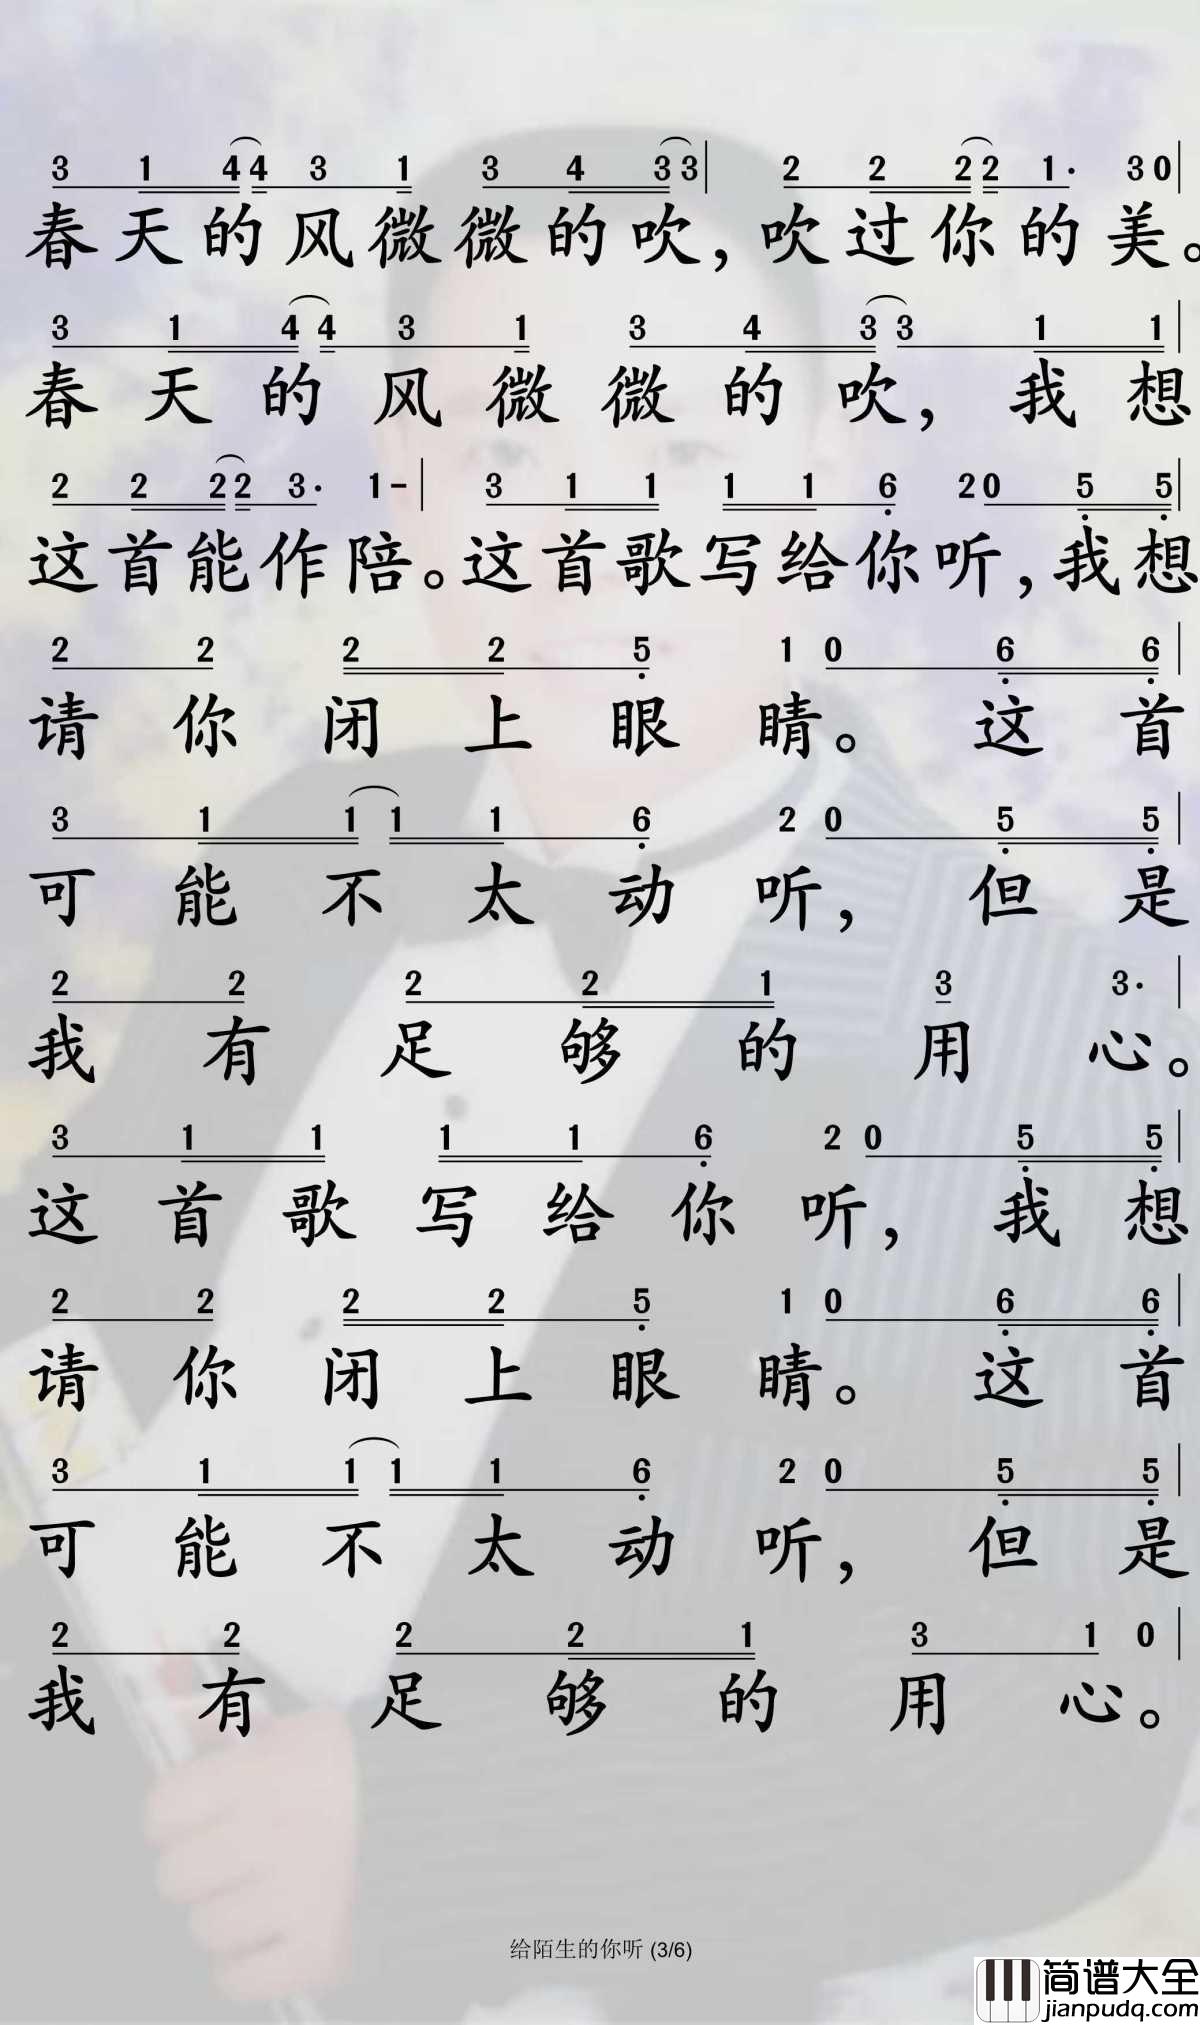 3 1 4 4 3 1 3 4 3 3 | 2 2 2 2 1· 3 0 |
春天的风微微的吹，吹过你的美。
3 1 4 4 3 1 3 4 3 3 1 1 |
春天的风微微的吹，我想
2 2 2 2 3· 1 - | 3 1 1 1 1 6 2 0 5 5 |
这首能作陪。这首歌写给你听，我想
2 2 2 2 5 1 0 6 6 |
请你闭上眼睛。这首
3 1 1 1 1 6 2 0 5 5 |
可能不太动听，但是
2 2 2 2 1 3 3· |
我有足够的用心。
3 1 1 1 1 6 2 0 5 5 |
这首歌写给你听，我想
2 2 2 2 5 1 0 6 6 |
请你闭上眼睛。这首
3 1 1 1 1 6 2 0 5 5 |
可能不太动听，但是
2 2 2 2 1 3 1 0 |
我有足够的用心。
给陌生的你听 (3/6)
简谱大全
jianpudq.com